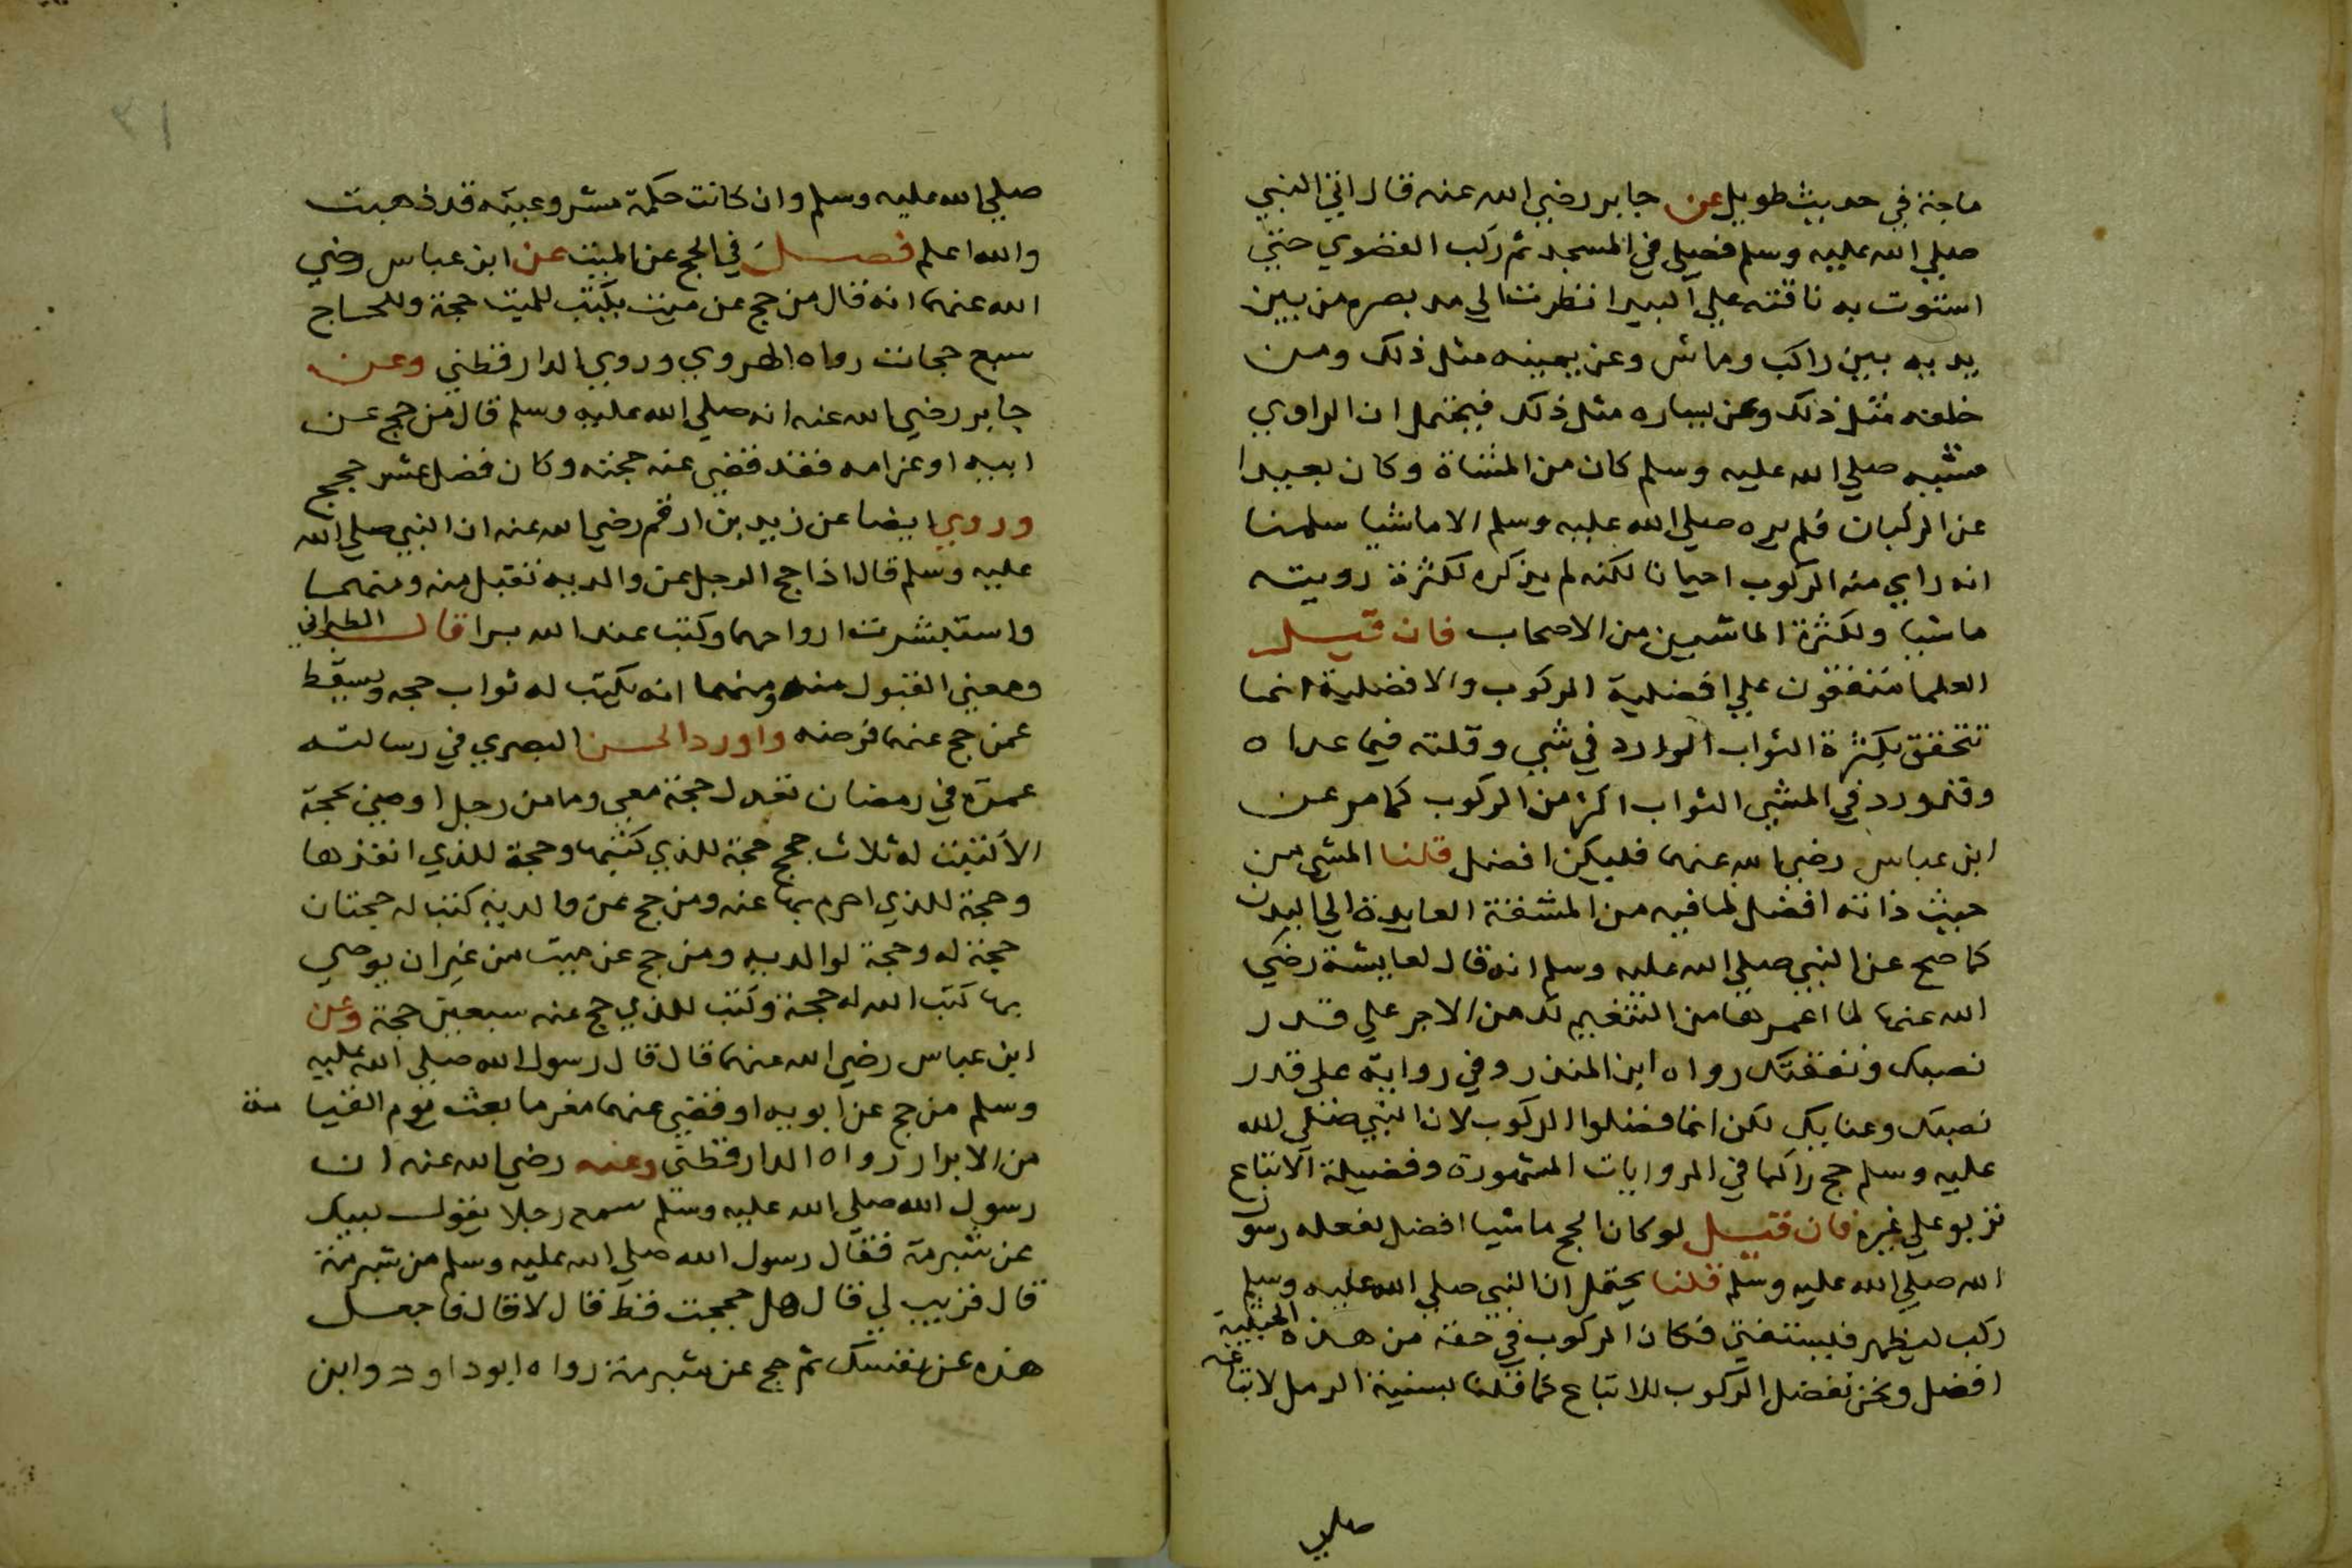 ماجة في حديث طويل عن جابر رضي الله عنه قال اتي النبي
صلي الله عليه وسلم فصلي في المسجد ثم ركب القضوي حتي
استوت به ناقته علي البيدا نظرت الي مد بصره من بين
يديه بين راكب وماش وعن يمينه مثل ذلك ومن
خلفه مثل ذلك وعن يساره مثل ذلك فيحتمل ان الراوي
مشيه صلي الله عليه وسلم كان من المشاة وكان بعيدا
عن الركبان فلم يره صلي الله عليه وسلم الا ماشيا سلمنا
انه راي منه الركوب احيانا لكنه لم يذكره لكثرة رويته
ماشيا ولكثرة الماشيين من الاصحاب فان قيل
العلما متفقون علي افضلية الركوب والافضلية انما
تتحقق بكثرة الثواب الوارد في شي وقلته فيما عداه
وقد ورد في المشي الثواب اكثر من الركوب كما مر عن
ابن عباس رضي الله عنهما فليكن افضل قلنا المشي من
حيث ذاته افضل لما فيه من المشقة العايدة الي البدن
كما صح عن النبي صلي الله عليه وسلم انه قال لعايشة رضي
الله عنها لما اعمرها من التنعيم لك من الاجر علي قدر
نصبك ونفقتك رواه ابن المنذر وفي رواية علي قدر
نصبك وعنايك لكن انما فضلوا الركوب لان النبي صلي الله
عليه وسلم حج راكبا في الروايات المشهورة وفضيلة الاتباع
تربو علي غيره فان قيل لو كان الحج ماشيا افضل لفعله رسول
الله صلي الله عليه وسلم قلنا يحتمل ان النبي صلي الله عليه وسلم
ركب ليظهر فليستفتي فكان الركوب في حقه من هذه الحيثية
افضل ونحن نفضل الركوب للاتباع كما قلنا بسنية الرمل لاتباعه
صلي
صلي الله عليه وسلم وان كانت حكمة مشروعيته قد ذهبت
والله اعلم فصل في الحج عن الميت عن ابن عباس رضي
الله عنهما انه قال من حج عن ميت يكتب للميت حجة وللحاج
سبع حجات رواه الهروي وروي الدارقطني وعن
جابر رضي الله عنه انه صلي الله عليه وسلم قال من حج عن
ابيه او عن امه فقد قضي عنه حجته وكان فضل عشر حجج
وروي ايضا عن زيد بن ارقم رضي الله عنه ان النبي صلي الله
عليه وسلم قال اذا حج الرجل عن والديه تقبل منه ومنهما
واستبشرت ارواحهما وكتب عند الله برا قال الطبراني
ومعني القبول منه ومنهما انه يكتب له ثواب حجه ويسقط
عمن حج عنهما فرضه واورد الحسن البصري في رسالته
عمرة في رمضان تعدل حجة معي وما من رجل اوصي بحجة
الا كتبت له ثلاث حجج حجة للذي كتبها وحجة للذي انفذها
وحجة للذي احرم بها عنه ومن حج عن والديه كتب له حجتان
حجة له وحجة لوالديه ومن حج عن ميت من غير ان يوصي
بها كتب الله له حجة وكتب للذي حج عنه سبعين حجة وعن
ابن عباس رضي الله عنهما قال قال رسول الله صلي الله عليه
وسلم من حج عن ابويه او قضي عنهما مغرما بعث يوم القيامة
من الابرار رواه الدارقطني وعنه رضي الله عنه ان
رسول الله صلي الله عليه وسلم سمع رجلا يقول لبيك
عن شبرمة فقال رسول الله صلي الله عليه وسلم من شبرمة
قال قريب لي قال هل حججت قط قال لا قال فاجعل
هذه عن نفسك ثم حج عن شبرمة رواه ابوداود وابن